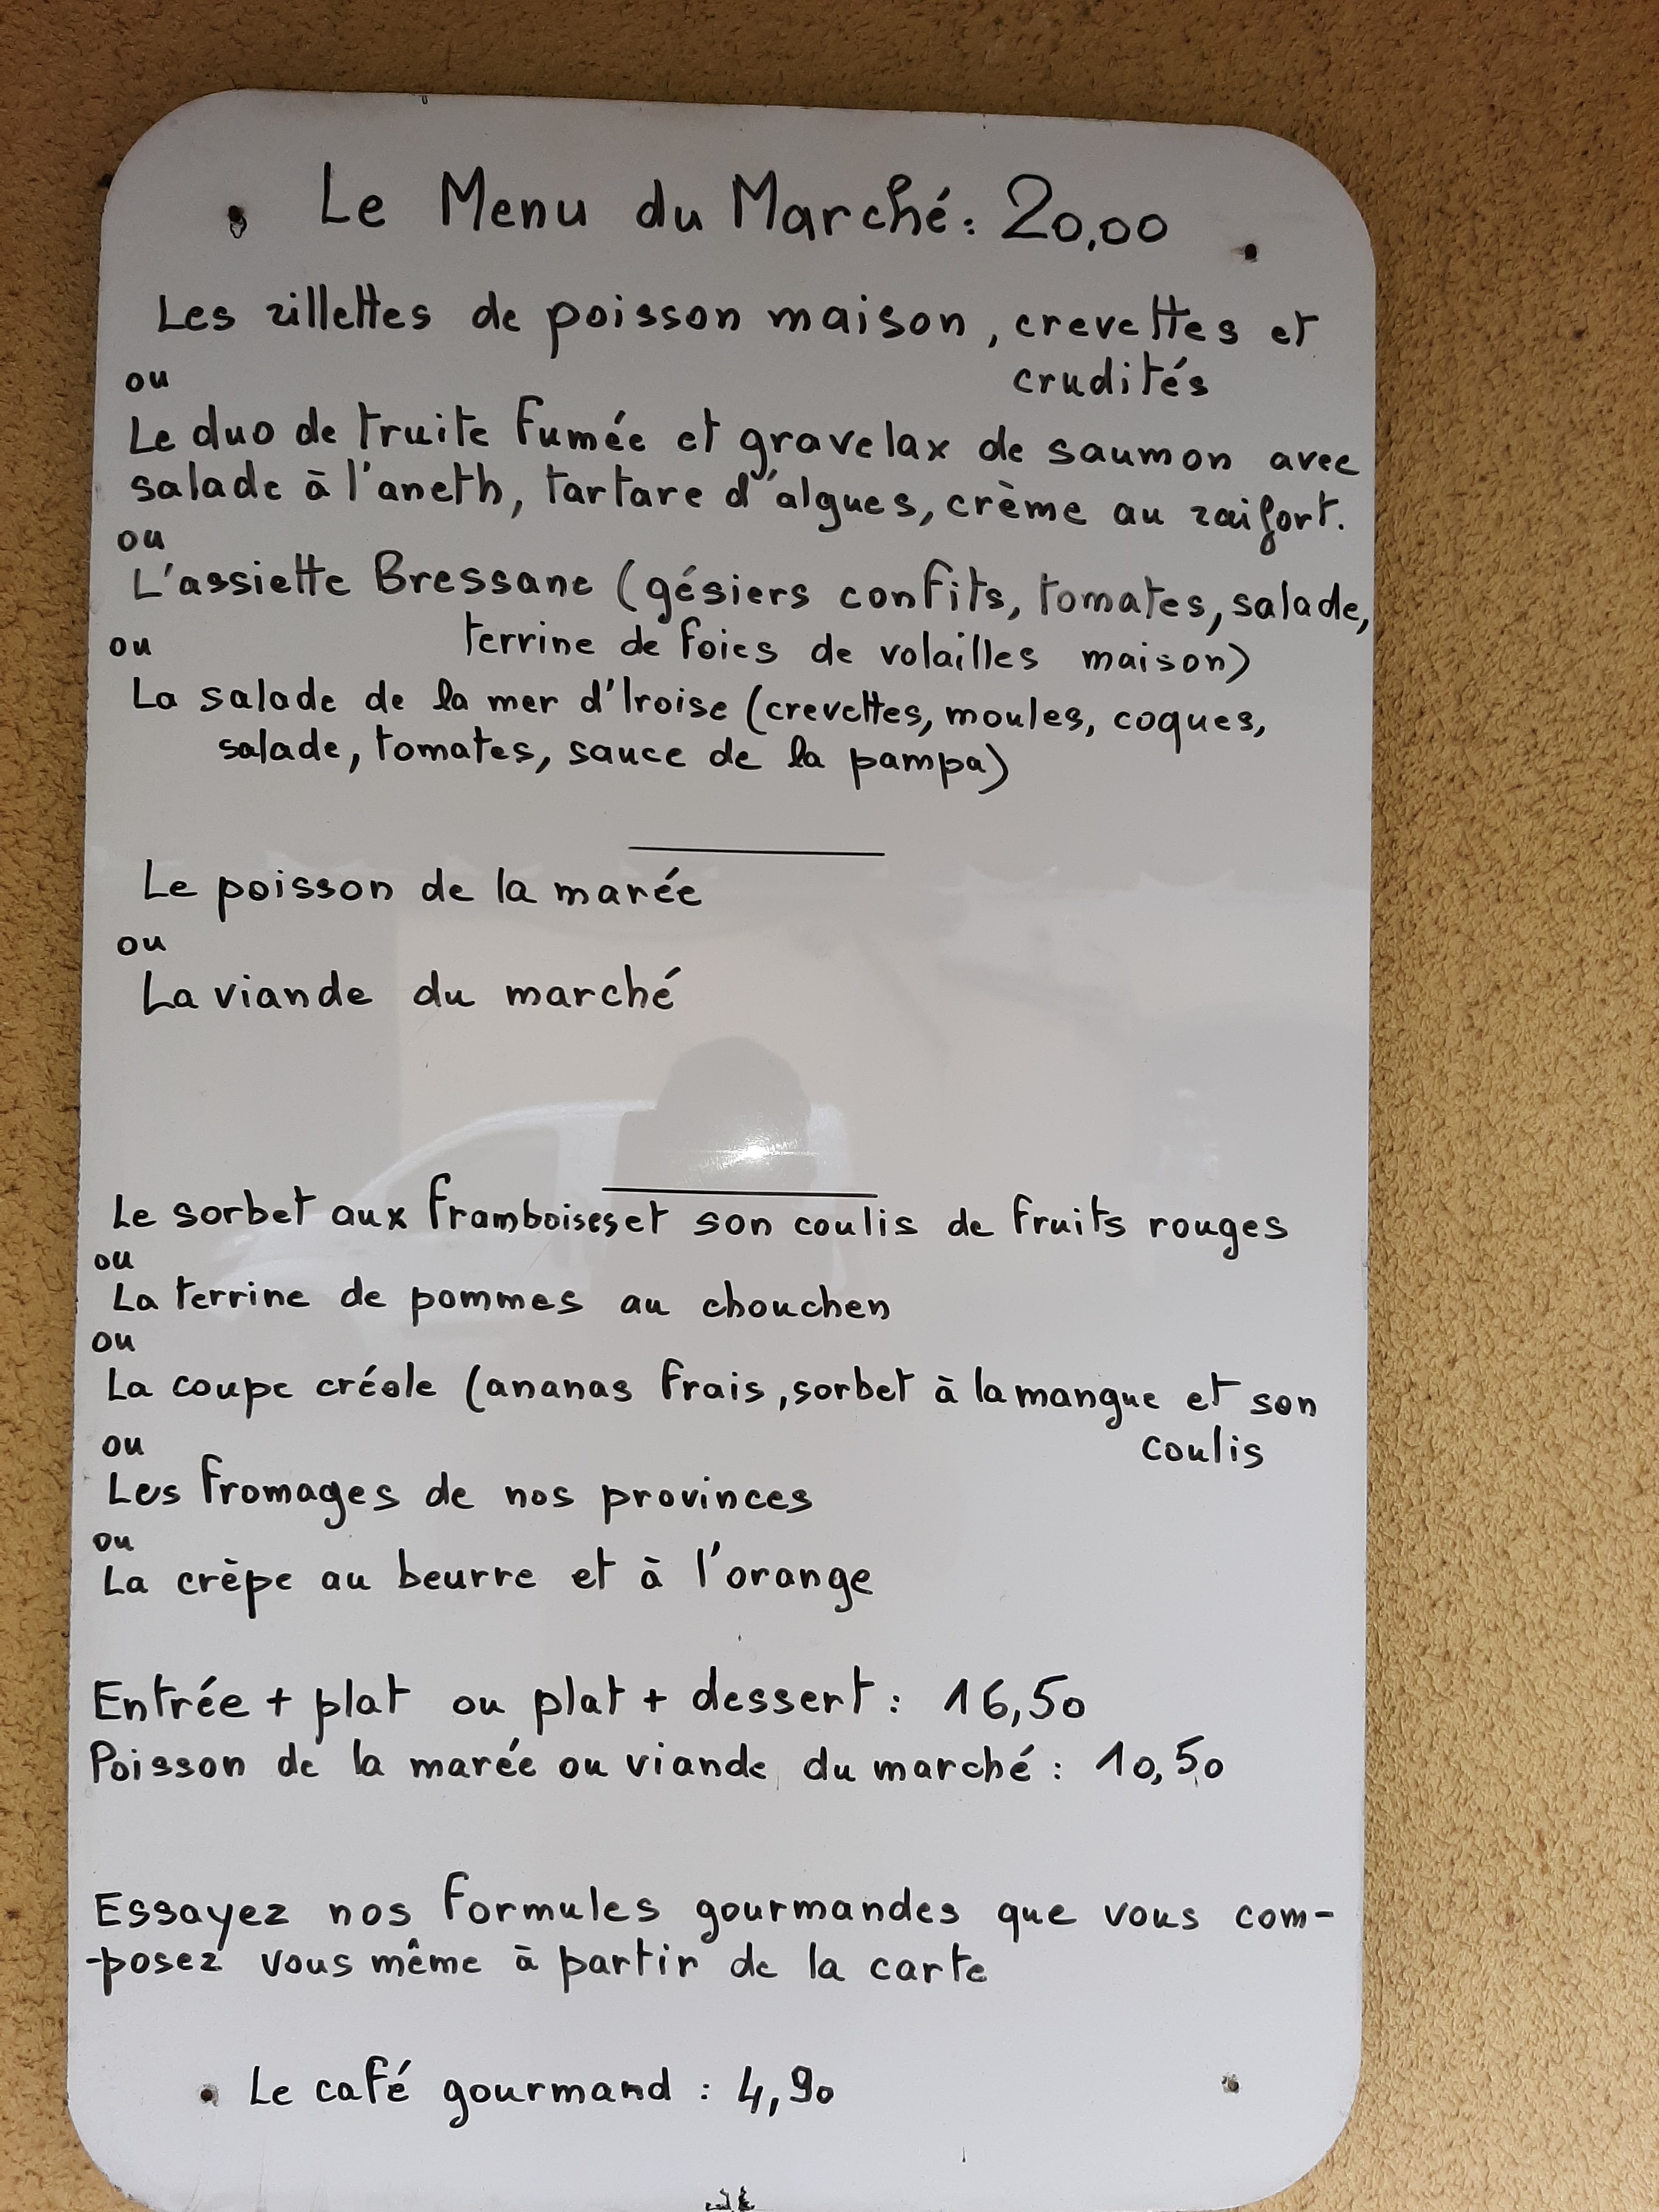 Le Menu du Marché: 20,00
Les rillettes de poisson maison, crevettes et
crudités
ou
Le duo de truite fumée et gravelax de saumon avec
salade à l'aneth, tartare d'algues, crème au raifort.
ou
L'assiette Bressane (gésiers confits, tomates, salade,
terrine de foies de volailles maison)
ou
La salade de la mer d'Iroise (crevettes, moules, coques,
salade, tomates, sauce de la pampa)
Le poisson de la marée
ou
La viande du marché
Le sorbet aux framboises et son coulis de fruits rouges
ou
La terrine de pommes au chouchen
ou
La coupe créole (ananas frais, sorbet à la mangue et son
coulis
ou
Les fromages de nos provinces
ou
La crèpe au beurre et à l'orange
Entrée + plat ou plat + dessert: 16,50
Poisson de la marée ou viande du marché: 10,50
Essayez nos formules gourmandes que vous com-
-posez vous même à partir de la carte
Le café gourmand: 4,90